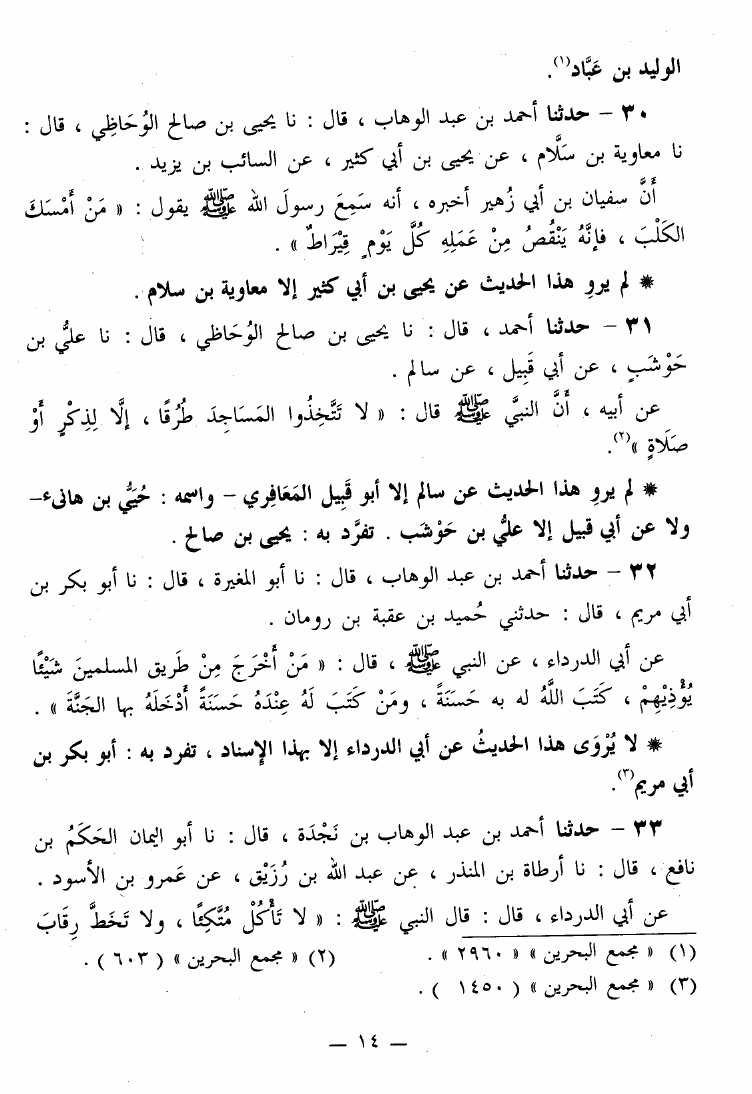 الوليد بن عَبَّاد(١).
٣٠ – حدثنا أحمد بن عبد الوهاب ، قال : نا يحيى بن صالح الوُحَاظِي ، قال :
نا معاوية بن سَلَّام ، عن يحيى بن أبي كثير ، عن السائب بن يزيد .
أَنَّ سفيان بن أبي زُهير أخبره ، أنه سَمِعَ رسولَ الله ﷺ يقول : « مَنْ أَمْسَكَ
الكَلْبَ ، فإنَّهُ يَنْقُصُ مِنْ عَمَلِهِ كُلَّ يَوْمٍ قِيْرَاطٌ » .
* لم يروِ هذا الحديث عن يحيى بن أبي كثير إلا معاوية بن سلام .
٣١ – حدثنا أحمد ، قال : نا يحيى بن صالح الوُحَاظي ، قال : نا عليُّ بن
حَوْشَبٍ ، عن أبي قَبِيل ، عن سالم .
عن أبيه ، أَنَّ النبيَّ ﷺ قال : « لا تَتَّخِذُوا المَسَاجِدَ طُرُقًا ، إلَّا لِذِكْرٍ أَوْ
صَلَاةٍ »(٢).
* لم يروِ هذا الحديث عن سالم إلا أبو قَبِيل المَعَافِري – واسمه : حُيَيُّ بن هانىء–
ولا عن أبي قبيل إلا عليُّ بن حَوْشَب . تفرَّد به : يحيى بن صالح .
٣٢ – حدثنا أحمد بن عبد الوهاب ، قال : نا أبو المغيرة ، قال : نا أبو بكر بن
أبي مريم ، قال : حدثني حُميد بن عقبة بن رومان .
عن أبي الدرداء ، عن النبي ﷺ ، قال : « مَنْ أَخْرَجَ مِنْ طَريق المسلمينَ شَيْئًا
يُؤْذِيْهِمْ ، كَتَبَ اللَّهُ له به حَسَنَةً ، ومَنْ كَتَبَ لَهُ عِنْدَهُ حَسَنَةً أَدْخَلَهُ بها الجَنَّةَ » .
* لا يُرْوَى هذا الحديثُ عن أبي الدرداء إلا بهذا الإسناد ، تفرد به : أبو بكر بن
أبي مريم(٣).
٣٣ – حدثنا أحمد بن عبد الوهاب بن نَجْدَة ، قال : نا أبو اليمان الحَكَمُ بن
نافع ، قال : نا أرطاة بن المنذر ، عن عبد الله بن رُزَيْق ، عن عَمرو بن الأسود .
عن أبي الدرداء ، قال : قال النبي ﷺ : « لا تَأْكُلْ مُتَّكِئًا ، ولا تَخَطَّ رِقَابَ
(١) « مجمع البحرين » « ٢٩٦٠ » . (٢) « مجمع البحرين » ( ٦٠٣ ) .
(٣) « مجمع البحرين » ( ١٤٥٠ ) .
– ١٤ –